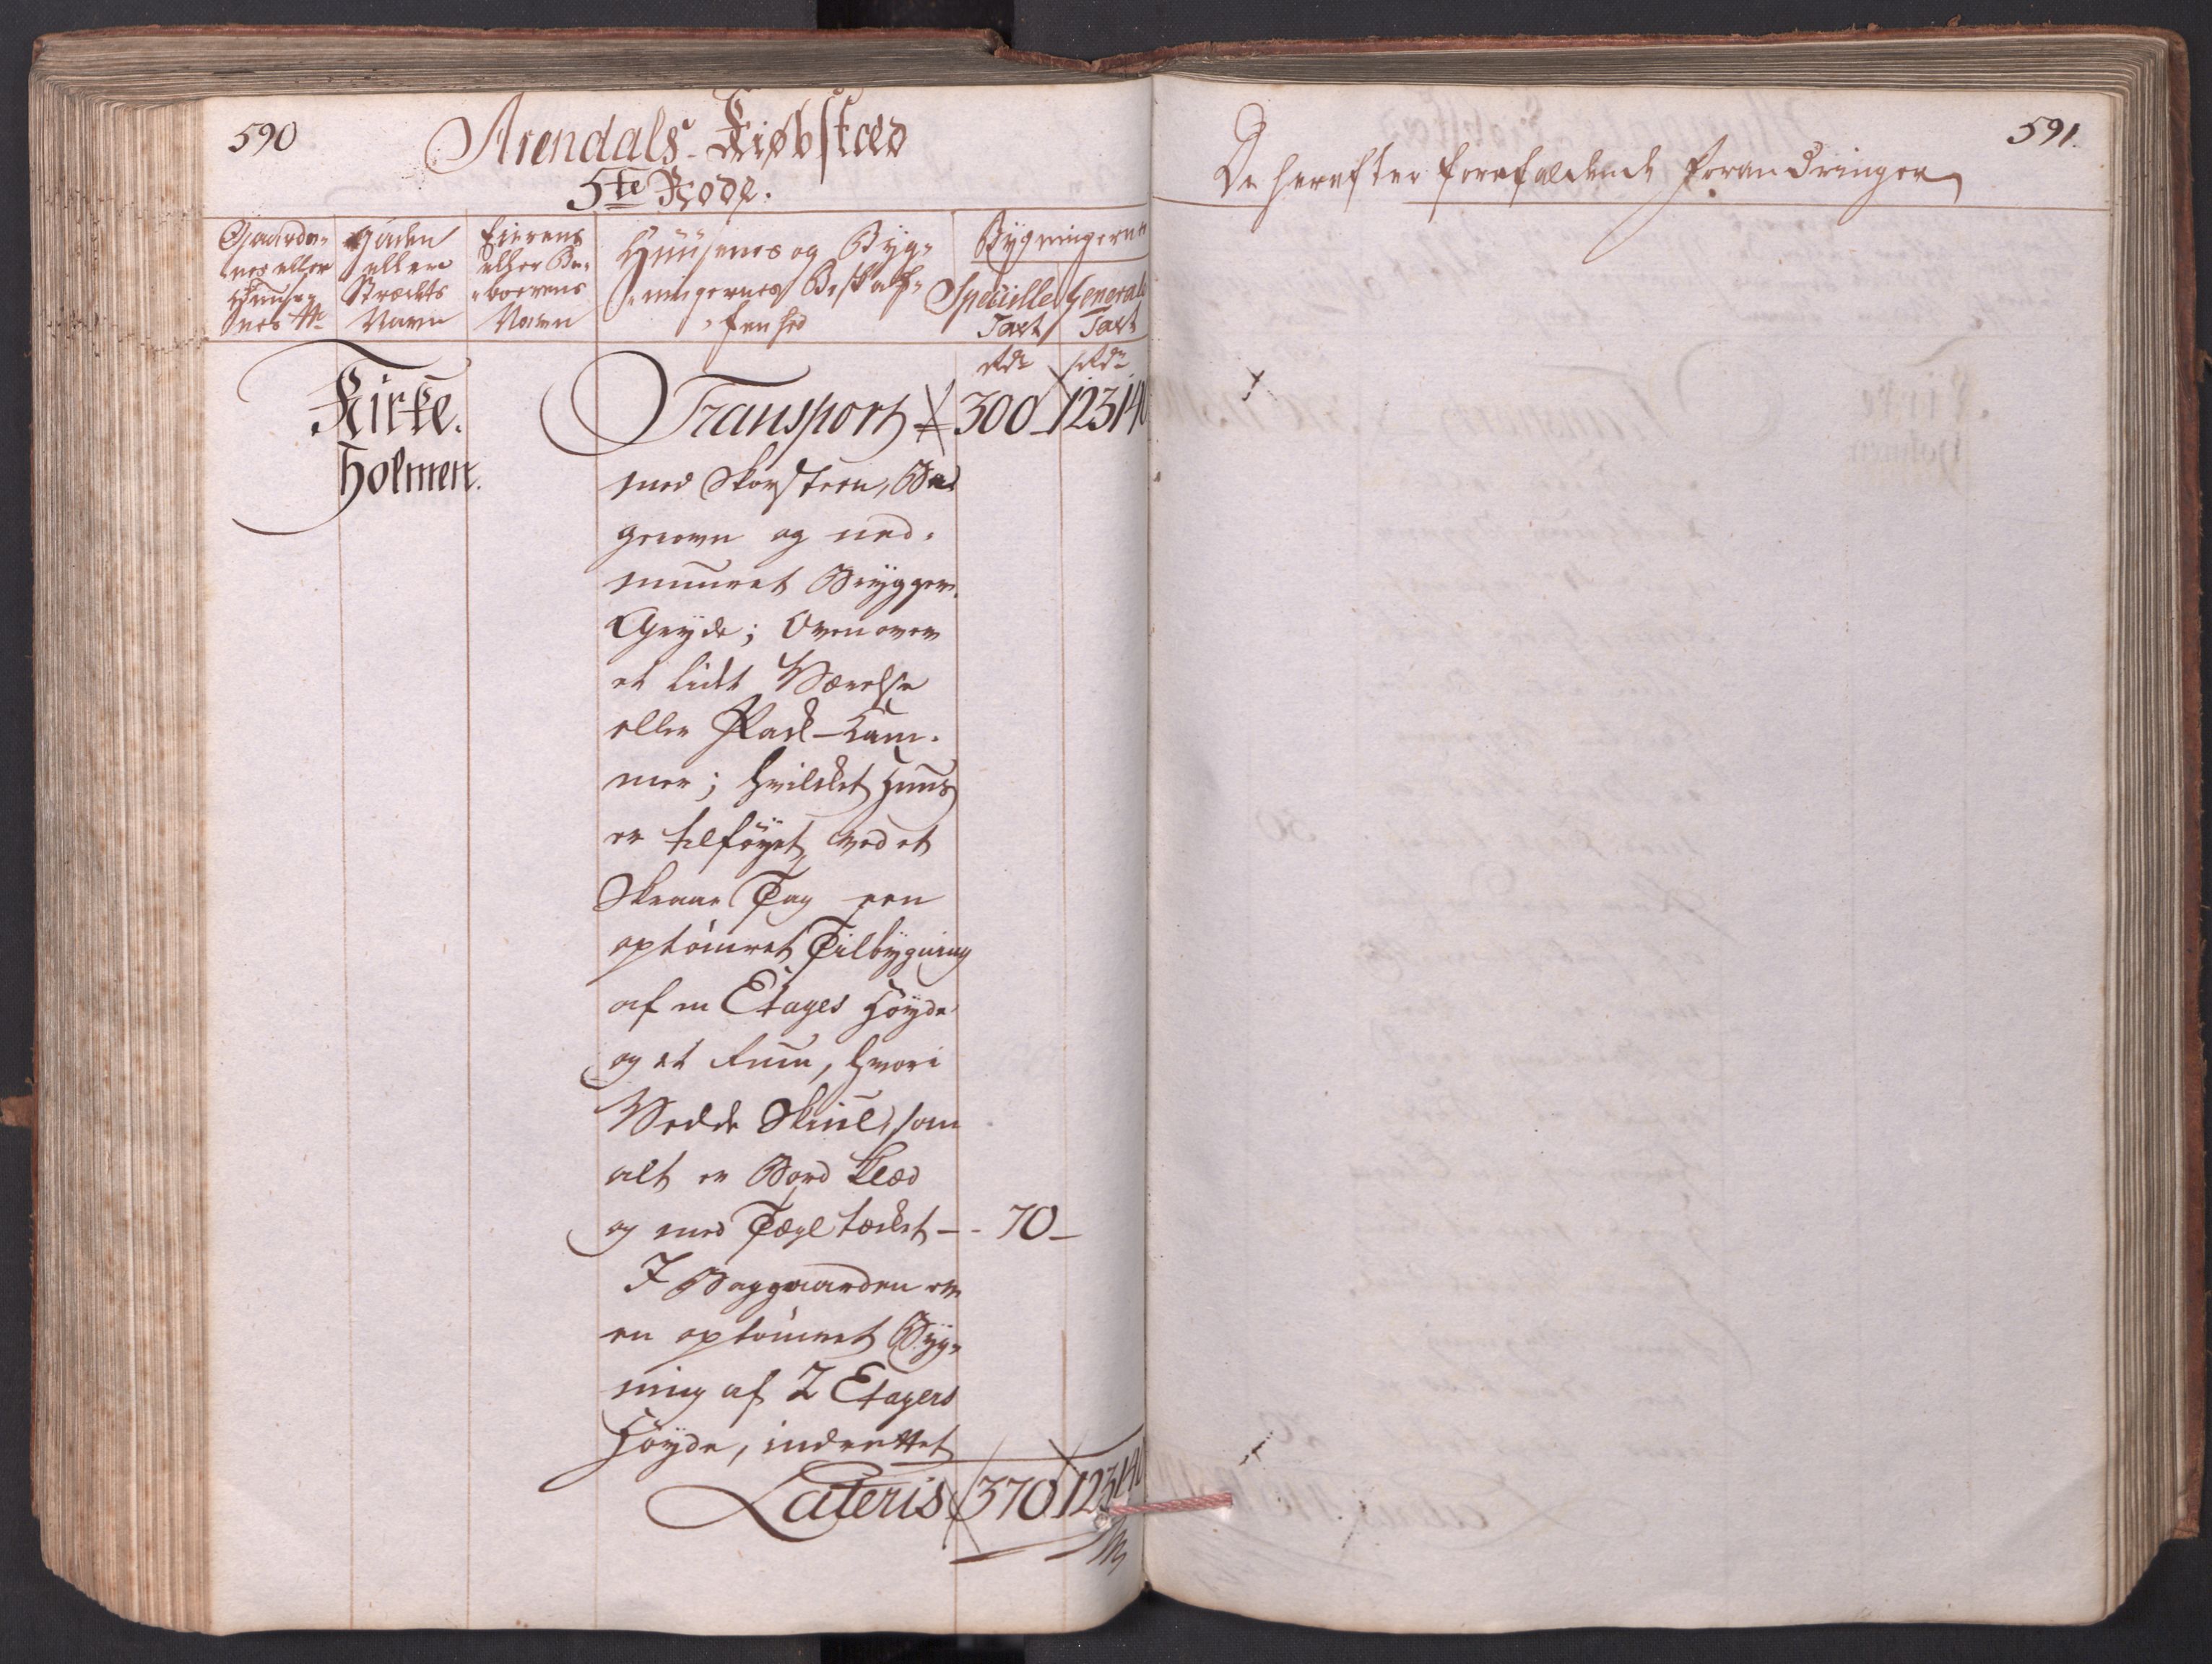 590
Arendals Kiøbstæd
5te Rode.
Gaarde-
nes eller
Huuse-
nes No
Gaden
eller
Strædets
Navn
Eierens
eller Be-
boerens
Navn
Huusenes og Byg-
ningernes Beskaf-
fenhed
Bygningernes
Specielle
Taxt
Generale
Taxt
Rdr
Rdr
Kirke-
holmen.
Transport 300 123140
med Skorsteen, Ba-
gerovn og ned-
muuret Brygger-
Gryde; Ovenover
et lidt Værelse
eller Pack-Kam-
mer; hvilcket Huus
er tilføyet ved et
Skraae Tag een
optömret Tilbygning
af en Etages Høyde
og et Rum, hvori
Vedde Skiul, som
alt er Bord klæd
og med Tægl tæcket - - 70 -
I Baggaarden er
en optömret Byg-
ning af 2 Etagers
Høyde, indrettet
Lateris 370 123140
591.
De herefter forefaldende Forandringer